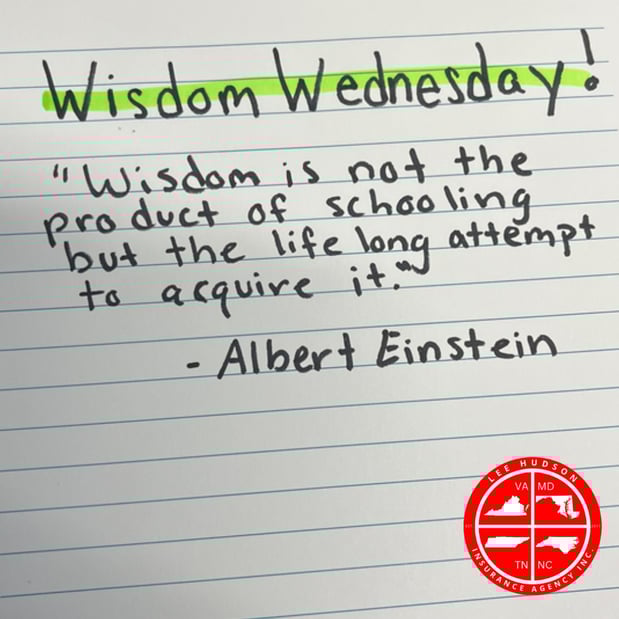 Wisdom Wednesday!
"Wisdom is not the
product of schooling
but the life long attempt
to acquire it."
- Albert Einstein
LEE HUDSON
VA MD
TN NC
INSURANCE AGENCY INC.